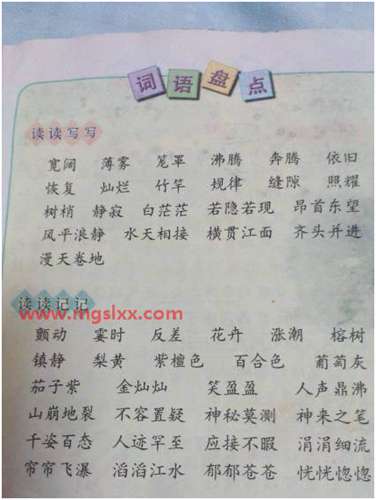 词语盘点
读读写写
宽阔 薄雾 笼罩 沸腾 奔腾 依旧
恢复 灿烂 竹竿 规律 缝隙 照耀
树梢 静寂 白茫茫 若隐若现 昂首东望
风平浪静 水天相接 横贯江面 齐头并进
漫天卷地
www.mgslxx.com
读读记记
颤动 霎时 反差 花卉 涨潮 榕树
镇静 梨黄 紫檀色 百合色 葡萄灰
茄子紫 金灿灿 笑盈盈 人声鼎沸
山崩地裂 不容置疑 神秘莫测 神来之笔
千姿百态 人迹罕至 应接不暇 涓涓细流
帘帘飞瀑 滔滔江水 郁郁苍苍 恍恍惚惚